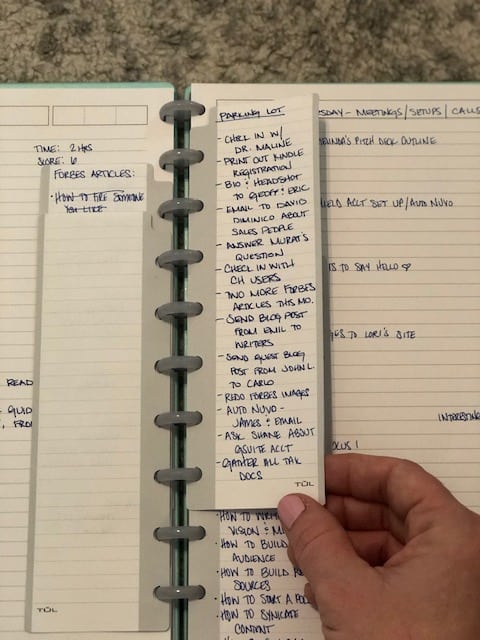 TIME: 2 HRS
SCORE: 6
FORBES ARTICLES:
- HOW TO FIRE SOMEONE
YOU LIKE
READ
TUL
PARKING LOT
- CHECK IN W/
DR. MALINE
- PRINT OUT KINDLE
REGISTRATION
- BIO & HEADSHOT
TO GEOFF & ERIC
- EMAIL TO DAVID
DIMINICO ABOUT
SALES PEOPLE
- ANSWER MURAT'S
QUESTION
- CHECK IN WITH
CH USERS
- TWO MORE FORBES
ARTICLES THIS MO.
- SEND BLOG POST
FROM EMIL TO
WRITERS
- SEND GUEST BLOG
POST FROM JOHN L.
TO CARLO
- REDO FORBES IMAGES
- AUTO NUVO -
JAMES & EMAIL
- ASK SHANE ABOUT
GSUITE ACCT
- GATHER ALL TAX
DOCS
TUL
- HOW TO
VISION &
- HOW TO BUILD
AUDIENCE
- HOW TO BUILD
SOURCES
- HOW TO START A
- HOW TO SYNDICATE
CONTENT
- MEETINGS / SETUPS / CALLS
PITCH DECK OUTLINE
ACCT SET UP / AUTO NUVO
TO SAY HELLO ♡
TO LORI'S SITE